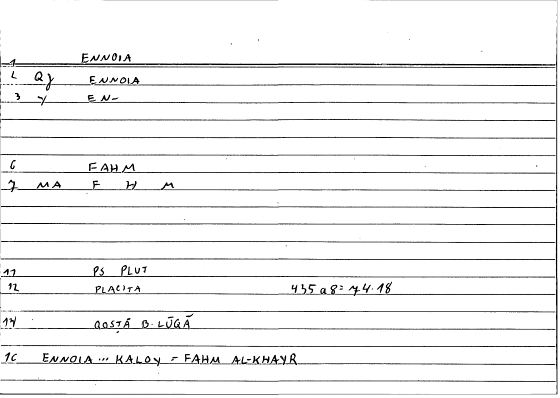 1 ENNOIA
2 Qy ENNOIA
3 y EN-
6 FAHM
7 MA F H M
11 PS PLUT
12 PLACITA 435 a 8 = 74.18
14 QOSṬĀ B. LŪQĀ
16 ENNOIA ... KALOY = FAHM AL-KHAYR